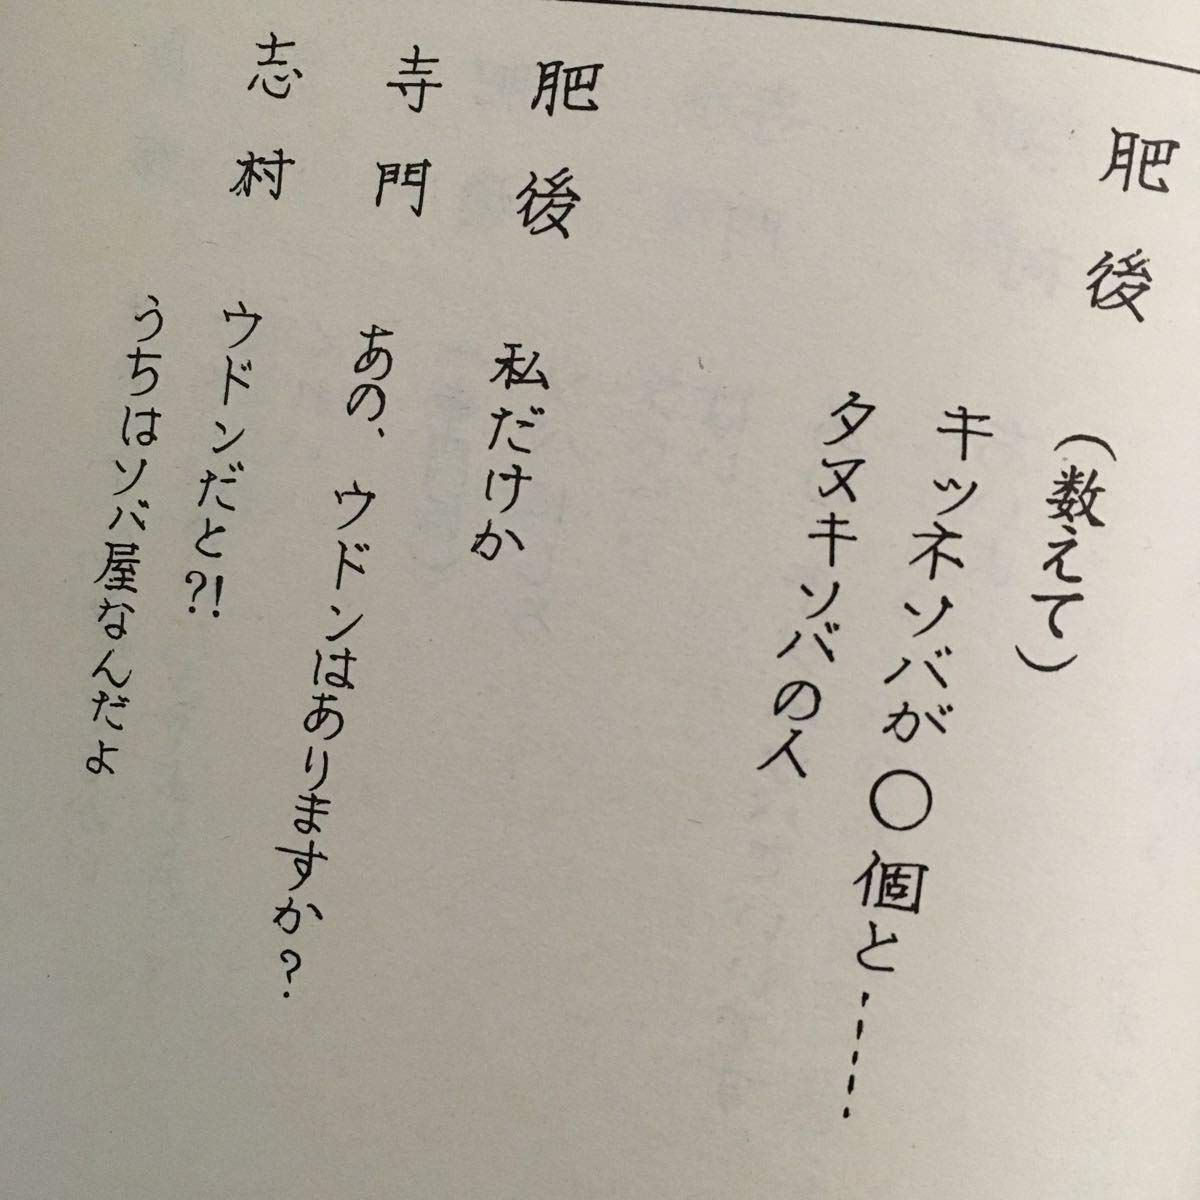 肥後
(数えて)
キツネソバが〇個と……
タヌキソバの人
肥後　私だけか
寺門　あの、ウドンはありますか?
志村　ウドンだと?!
うちはソバ屋なんだよ